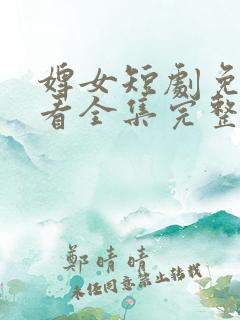 婢女短劇免
看全集完整
鄭晴晴
未经同意禁止转载